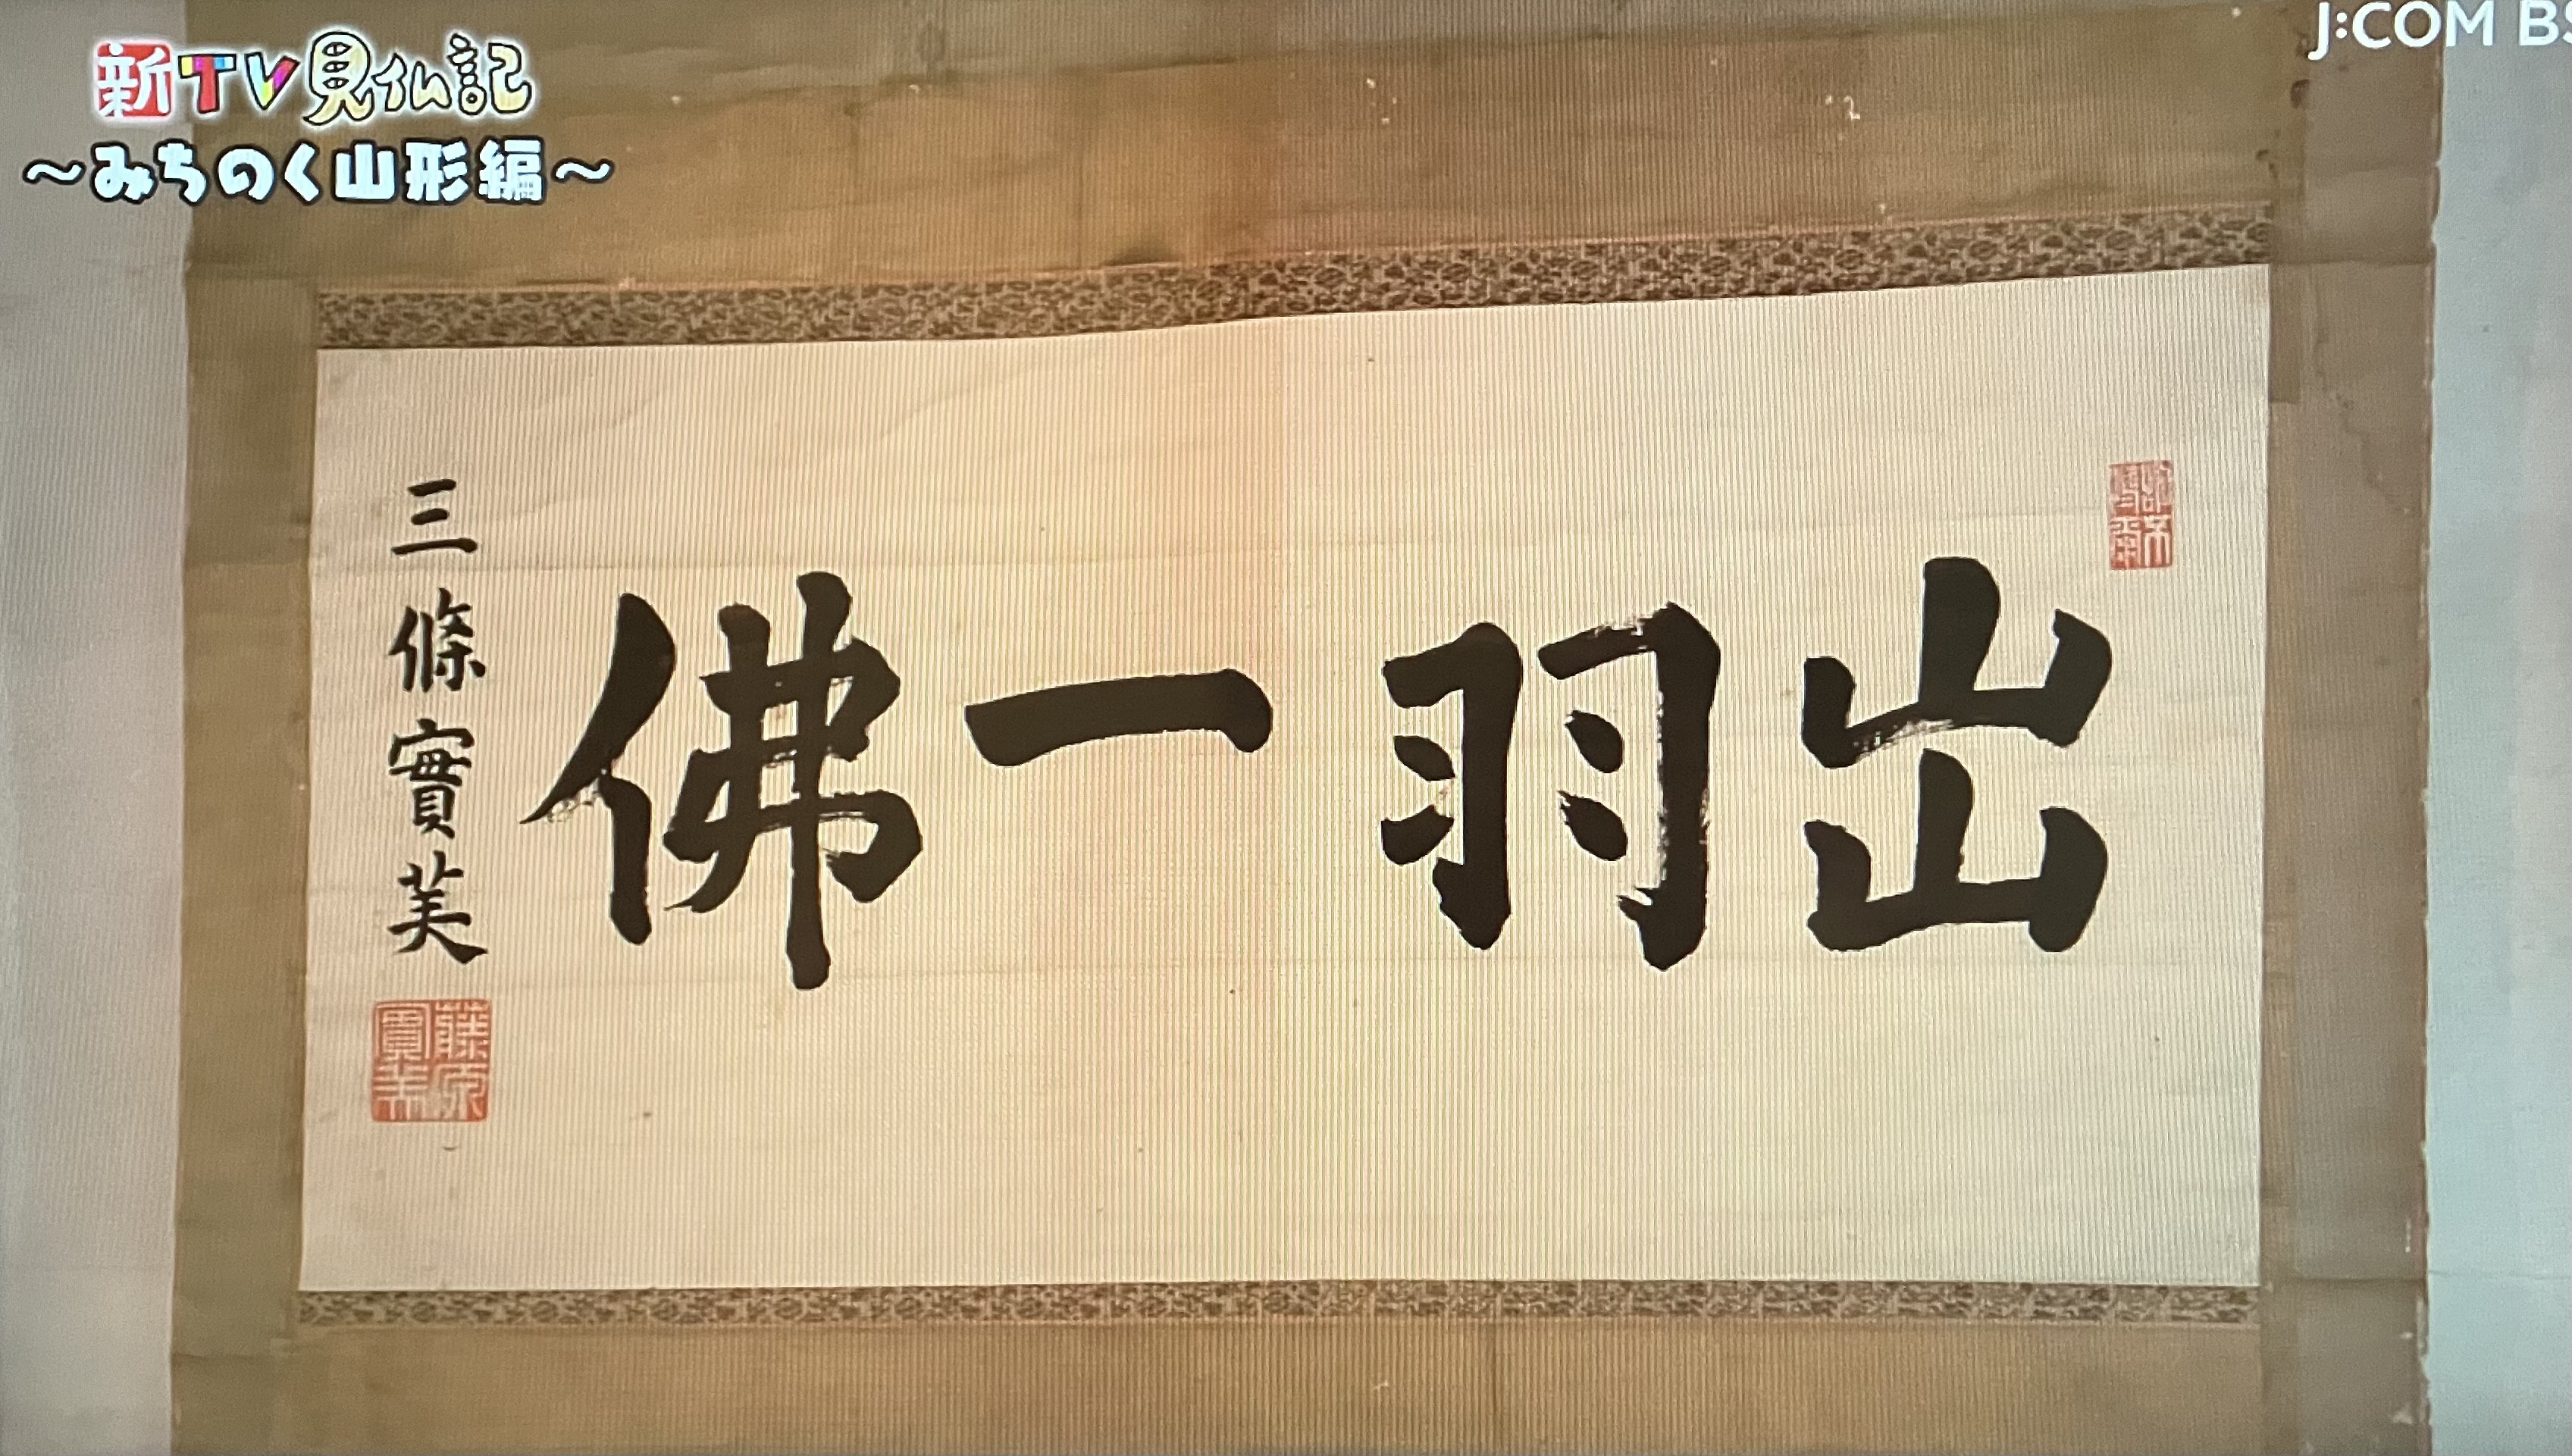 新TV見仏記
～みちのく山形編～
J:COM BS
出羽一佛
三條實美
藤原實美